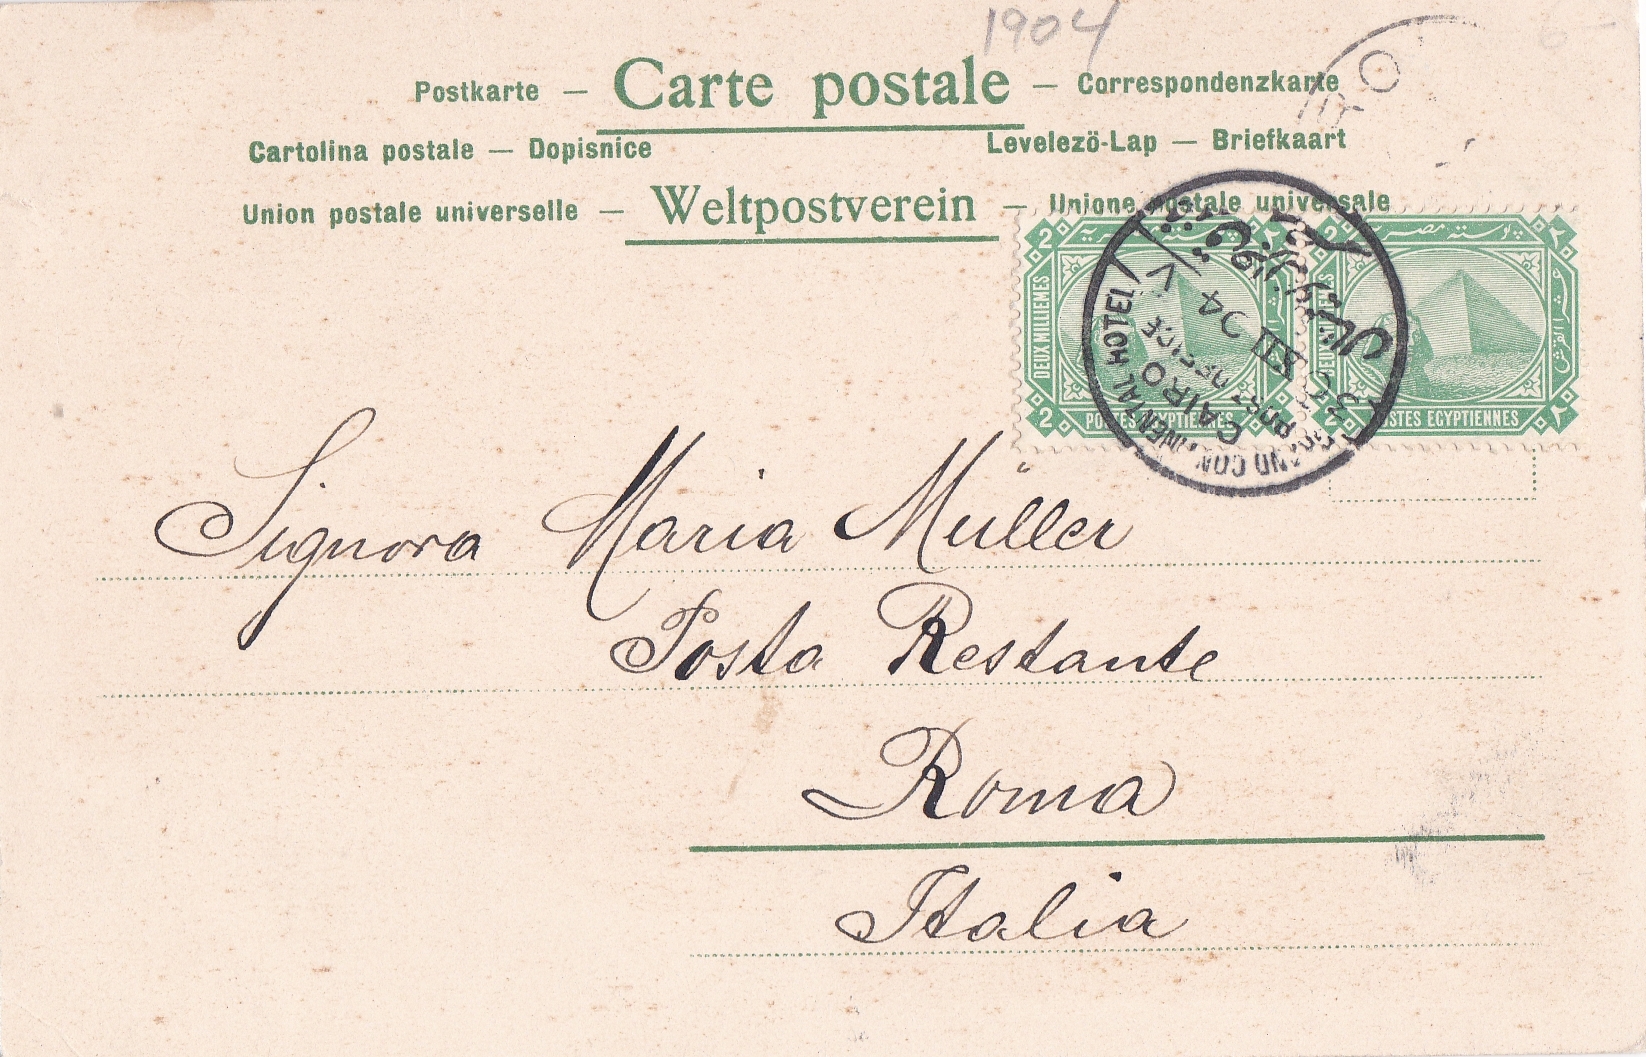 1904
Postkarte – Carte postale – Correspondenzkarte
Cartolina postale – Dopisnice Levelező-Lap – Briefkaart
Union postale universelle – Weltpostverein – Unione postale universale
2 پوسته مصريه ٢ 2 پوسته مصريه ٢
DEUX MILLIEMES DEUX MILLIEMES
2 POSTES EGYPTIENNES ٢ POSTES EGYPTIENNES ٢
GRAND CONTINENTAL HOTEL
CAIRO
POST OFFICE
Signora Maria Müller
Posta Restante
Roma
Italia